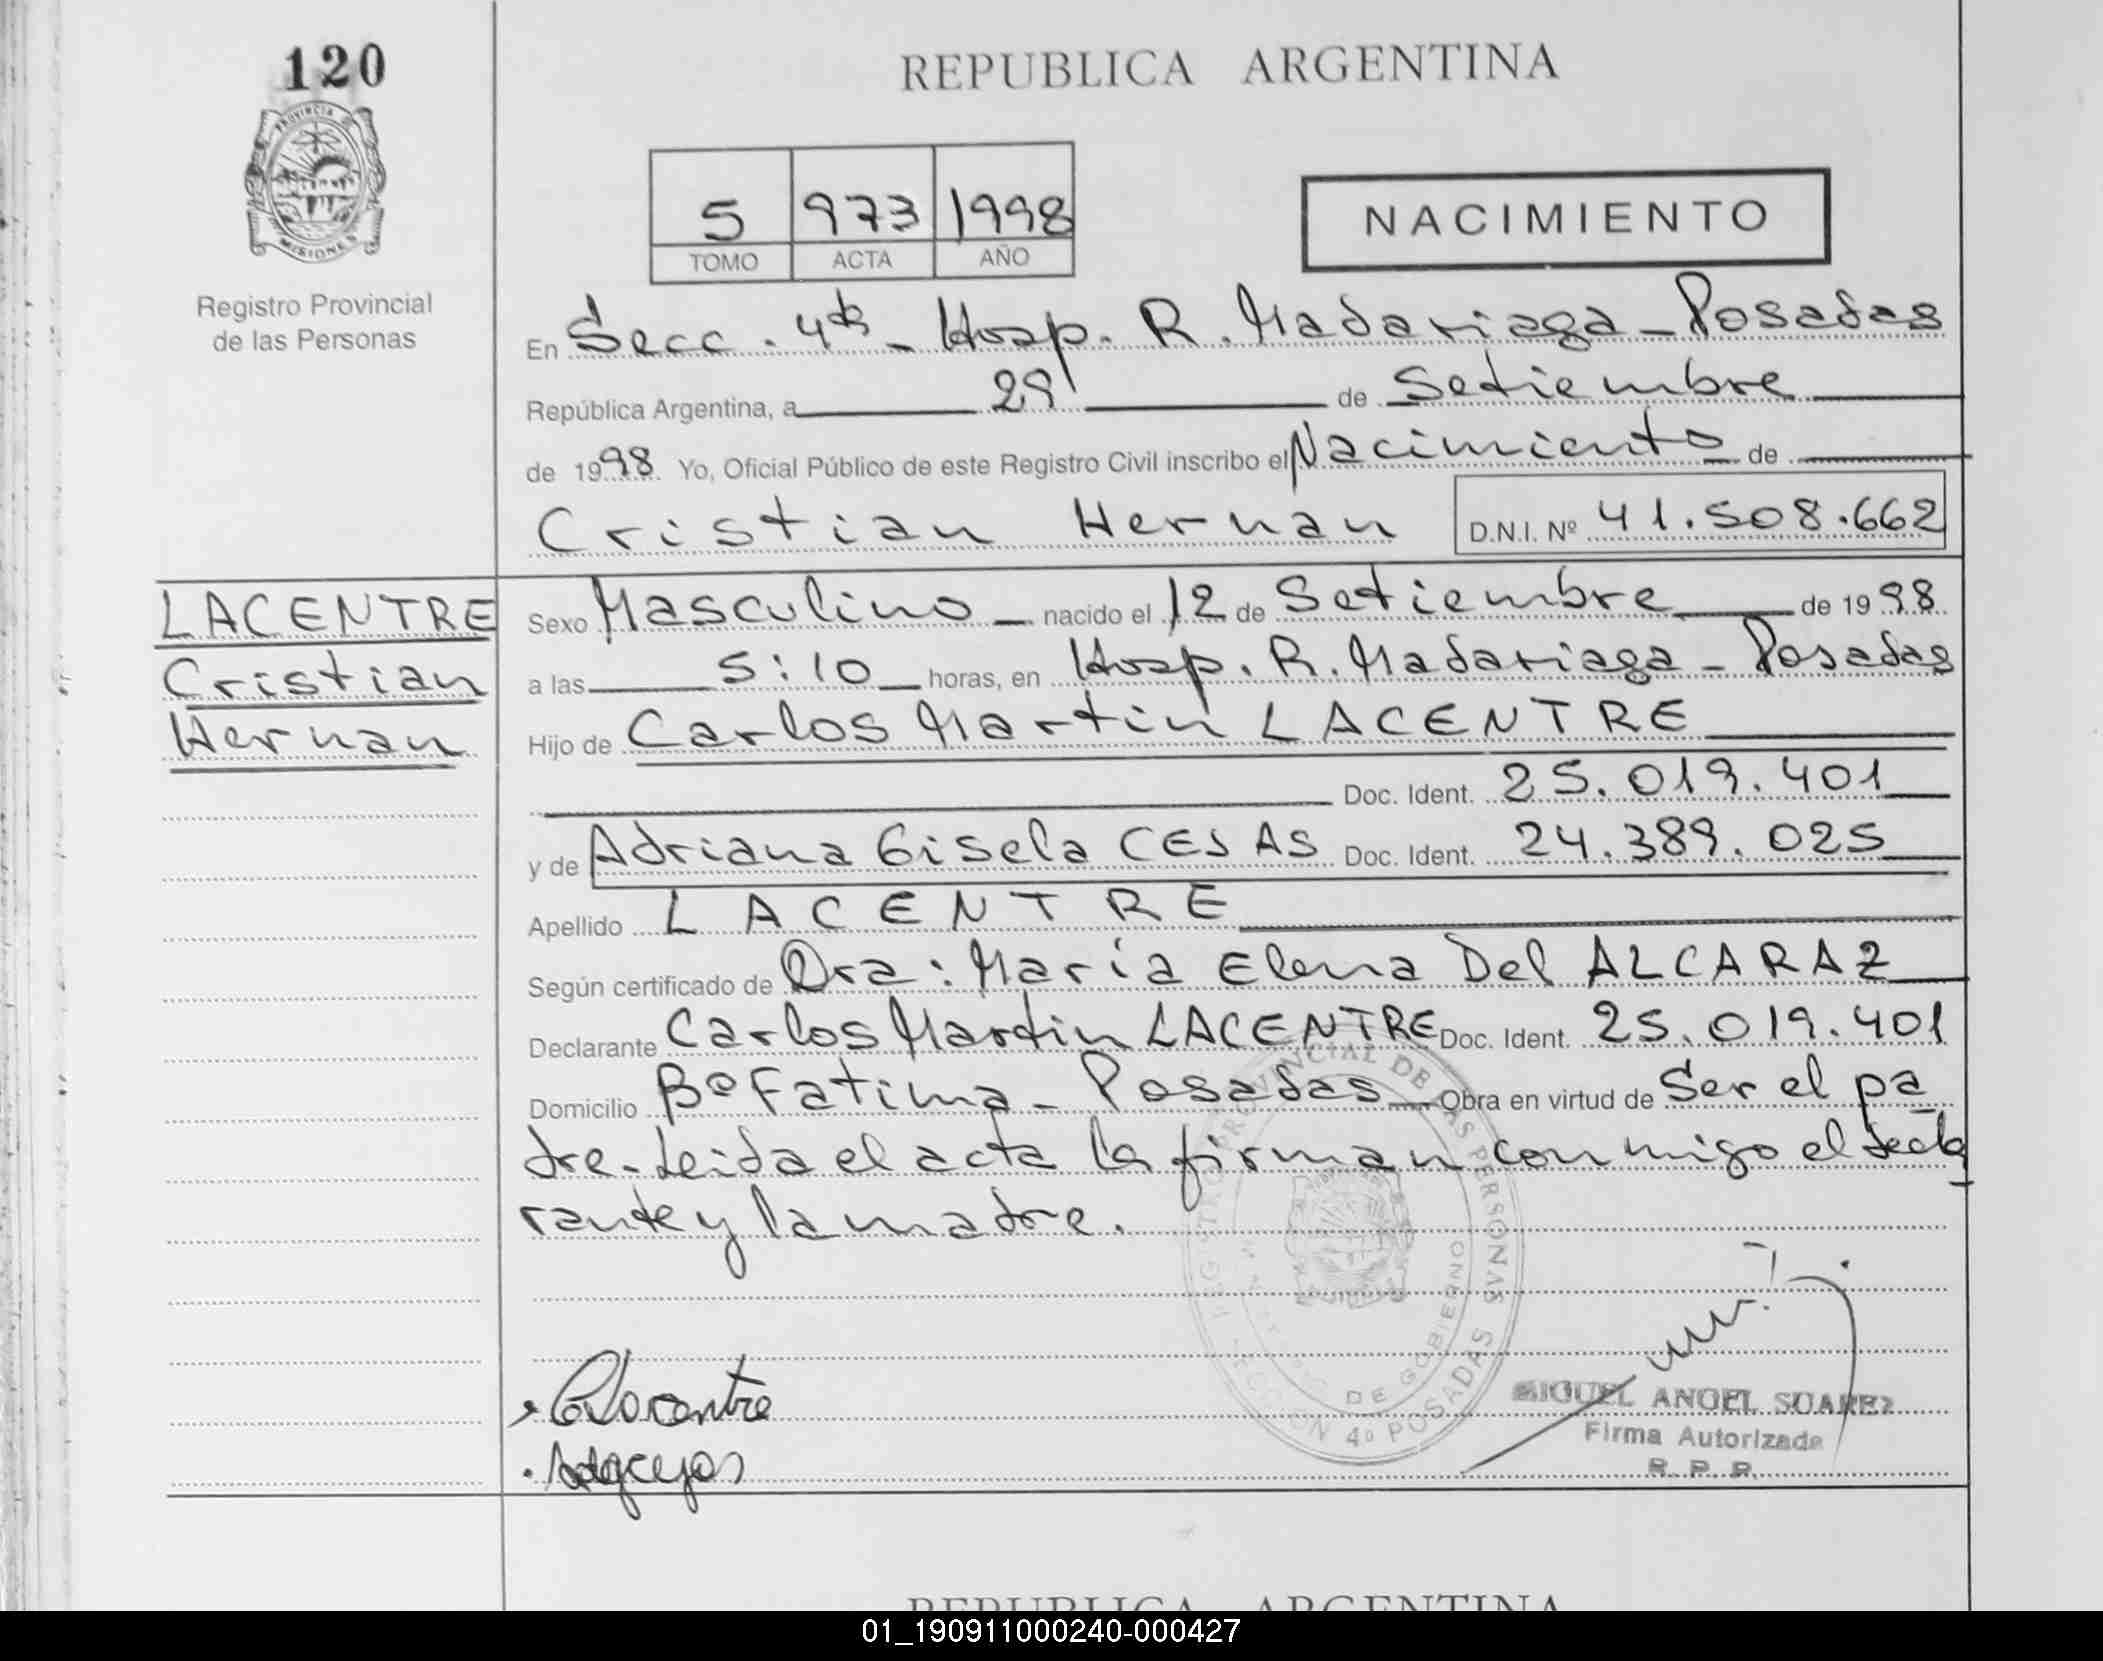 120
PROVINCIA DE
MISIONES
Registro Provincial
de las Personas
REPUBLICA ARGENTINA
5 973 1998
TOMO ACTA AÑO
NACIMIENTO
En Secc. 4ta - Hosp. R. Madariaga - Posadas
República Argentina, a 29 de Setiembre
de 1998 Yo, Oficial Público de este Registro Civil inscribo el Nacimiento de
Cristian Hernan D.N.I. Nº 41.508.662
LACENTRE
Cristian
Hernan
Sexo Masculino nacido el 12 de Setiembre de 1998
a las 5:10 horas, en Hosp. R. Madariaga - Posadas
Hijo de Carlos Martin LACENTRE
Doc. Ident. 25.019.401
y de Adriana Gisela Doc. Ident. 24.389.025
Apellido LACENTRE
Según certificado de Dra: María Elena Del ALCARAZ
Declarante Carlos Martin LACENTRE Doc. Ident. 25.019.401
Domicilio Bº Fatima - Posadas Obra en virtud de Ser el pa
dre - Leida el acta la firman conmigo el decla
rante y la madre.
REGISTRO PROVINCIAL DE LAS PERSONAS
MINISTERIO DE GOBIERNO
SECCION 4º POSADAS
MIGUEL ANGEL SUAREZ
Firma Autorizada
R. P. P.
REPUBLICA ARGENTINA
01_190911000240-000427